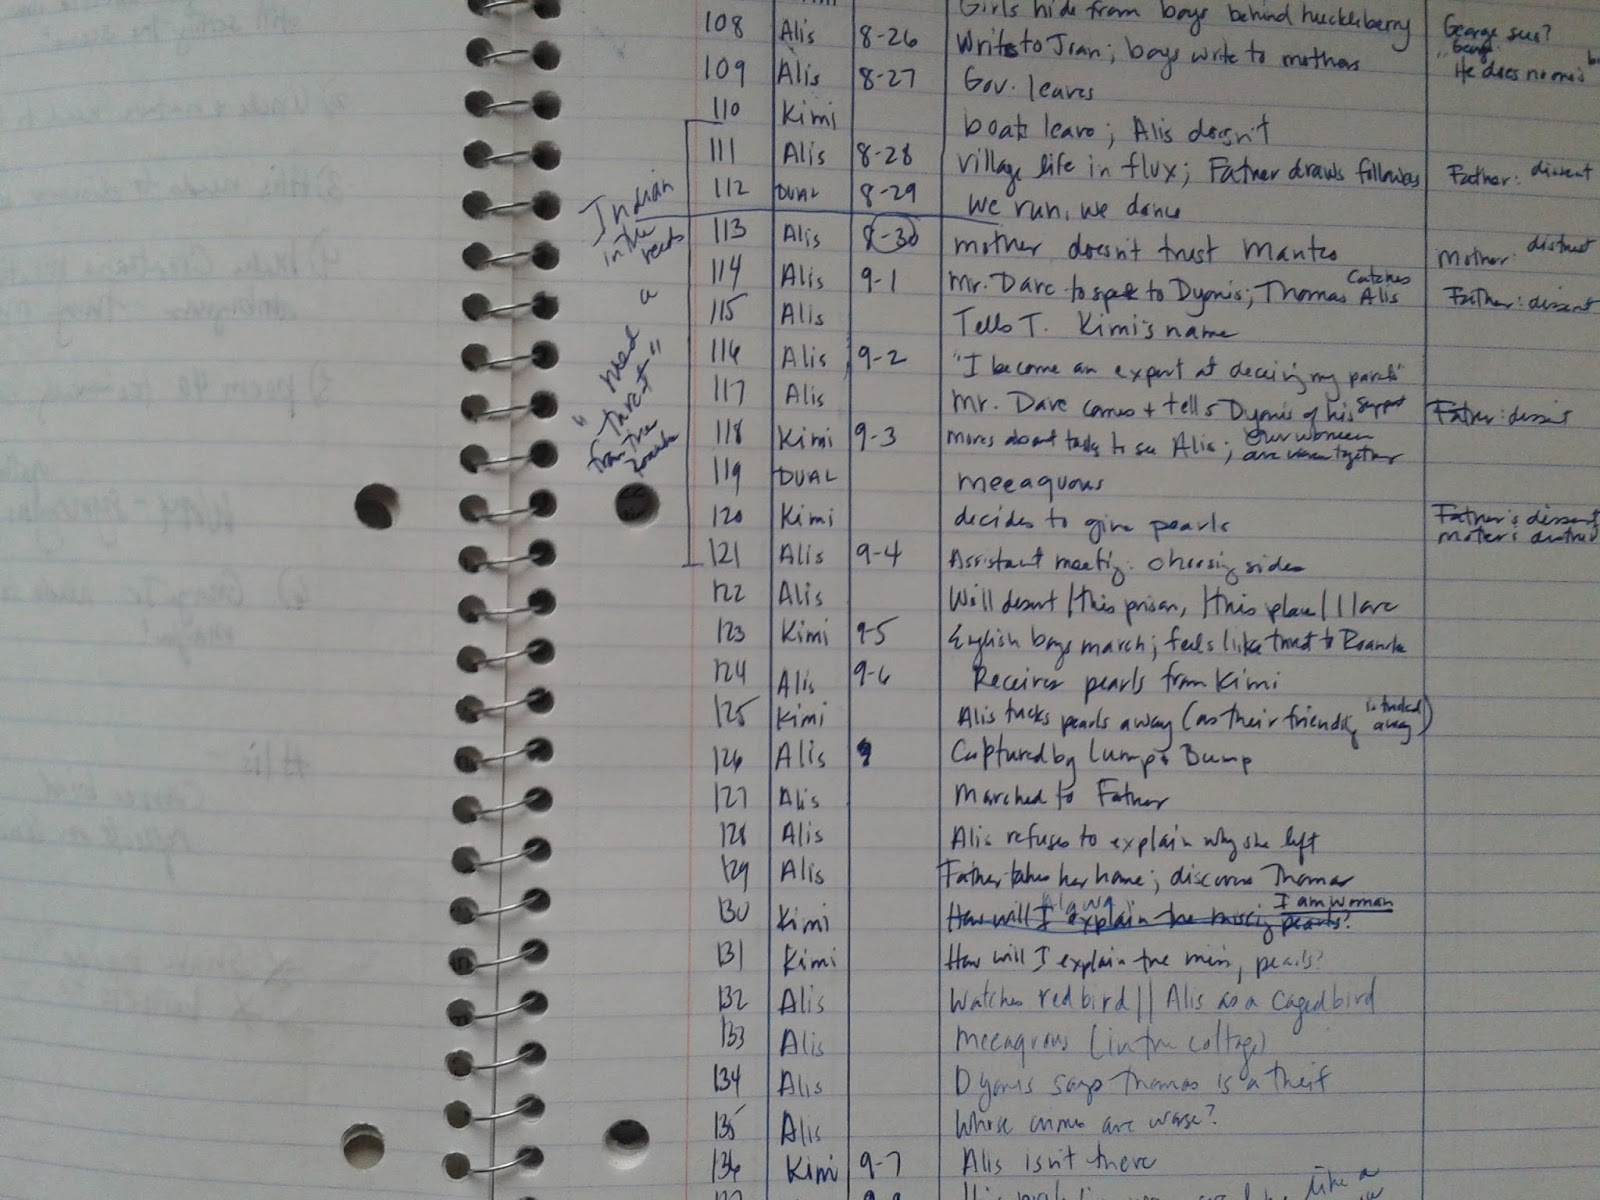 Girls hide from boys behind huckleberry
108 Alis 8-26 Writes to Joan; boys write to mothers George sees?
109 Alis 8-27 Gov. leaves He does no one's
110 Kimi boats leave; Alis doesn't
111 Alis 8-28 village life in flux; Father draws followers Father: dissent
112 DUAL 8-29 We run, we dance
113 Alis 8-30 mother doesn't trust Manteo Mother: distrust
114 Alis 9-1 Mr. Dare to speak to Dyonis; Thomas catches Alis Father: dissent
115 Alis Tells T. Kimi's name
116 Alis 9-2 "I become an expert at deceiving my parents"
117 Alis Mr. Dare comes + tells Dyonis of his support Father: dissent
118 Kimi 9-3 moves about tasks to see Alis; our women are together
119 DUAL meeaquous
120 Kimi decides to give pearls Father's dissent
Mother's distrust
121 Alis 9-4 Assistant meeting: choosing sides
122 Alis Will desert / this prison, / this place / I love
123 Kimi 9-5 English boys march; feels like threat to Roanoke
124 Alis 9-6 Receives pearls from Kimi
125 Kimi Alis tucks pearls away (as their friendship is tucked away)
126 Alis 9 Captured by Lump & Bump
127 Alis Marched to Father
128 Alis Alis refuses to explain why she left
129 Alis Father takes her home; discovers Thomas
130 Kimi How will I explain the missing pearls? Alawa I am woman
131 Kimi How will I explain the missing pearls?
132 Alis Watches red bird || Alis as a caged bird
133 Alis meeaquous (in the cottage)
134 Alis Dyonis says Thomas is a theif
135 Alis Whose crimes are worse?
136 Kimi 9-7 Alis isn't there
like a
Indian
in the
reeds
need
a
"threat"
from the
Roanoke